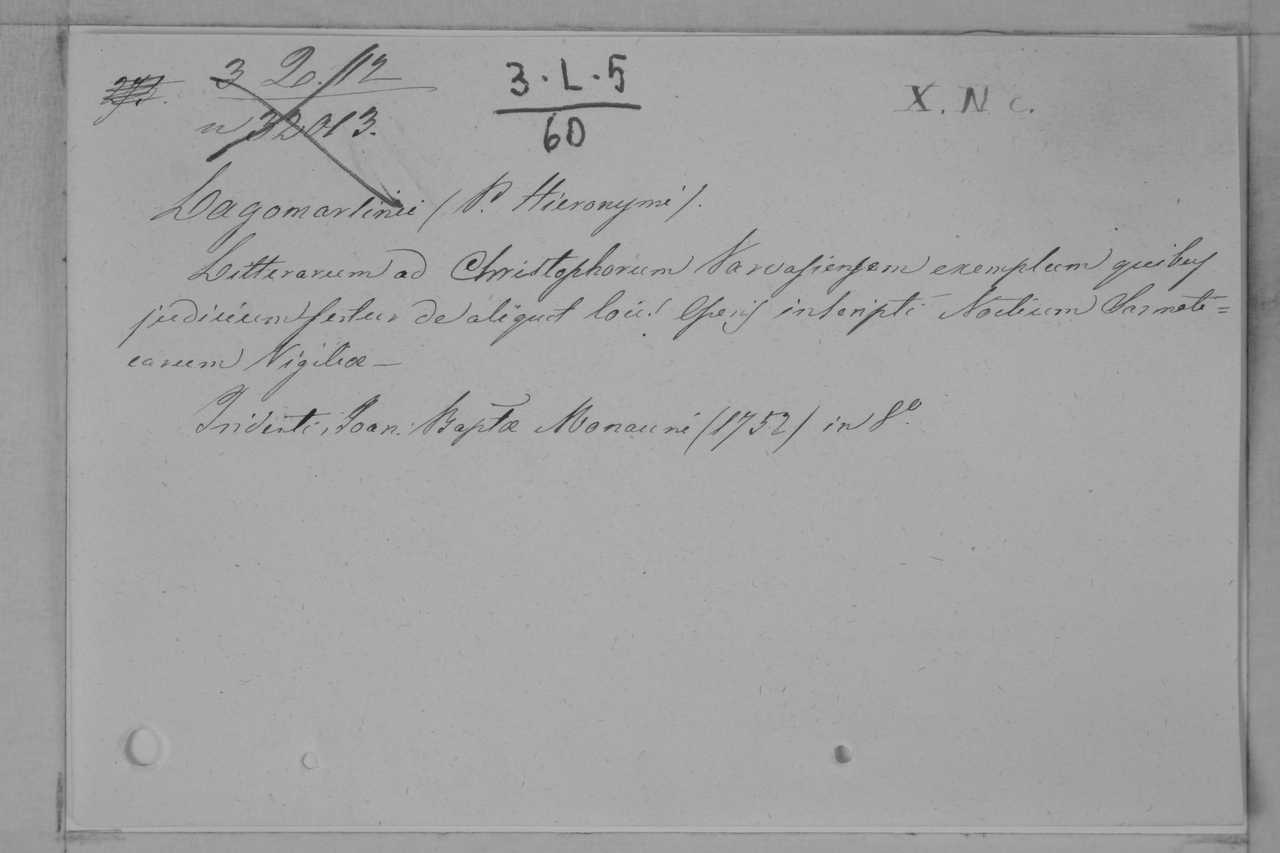 3 L. 112
n 32013.
3·L·5
60
X. N c.
Lagomarsinii (P. Hieronymi).
Litterarum ad Christophorum Varvasiensem exemplum quibus
judicium fertur de aliquot locis Operis inscripti Noctium Sarmati=
carum Vigiliæ —
Tridenti, Joan: Baptæ Monauni (1752) in 8º